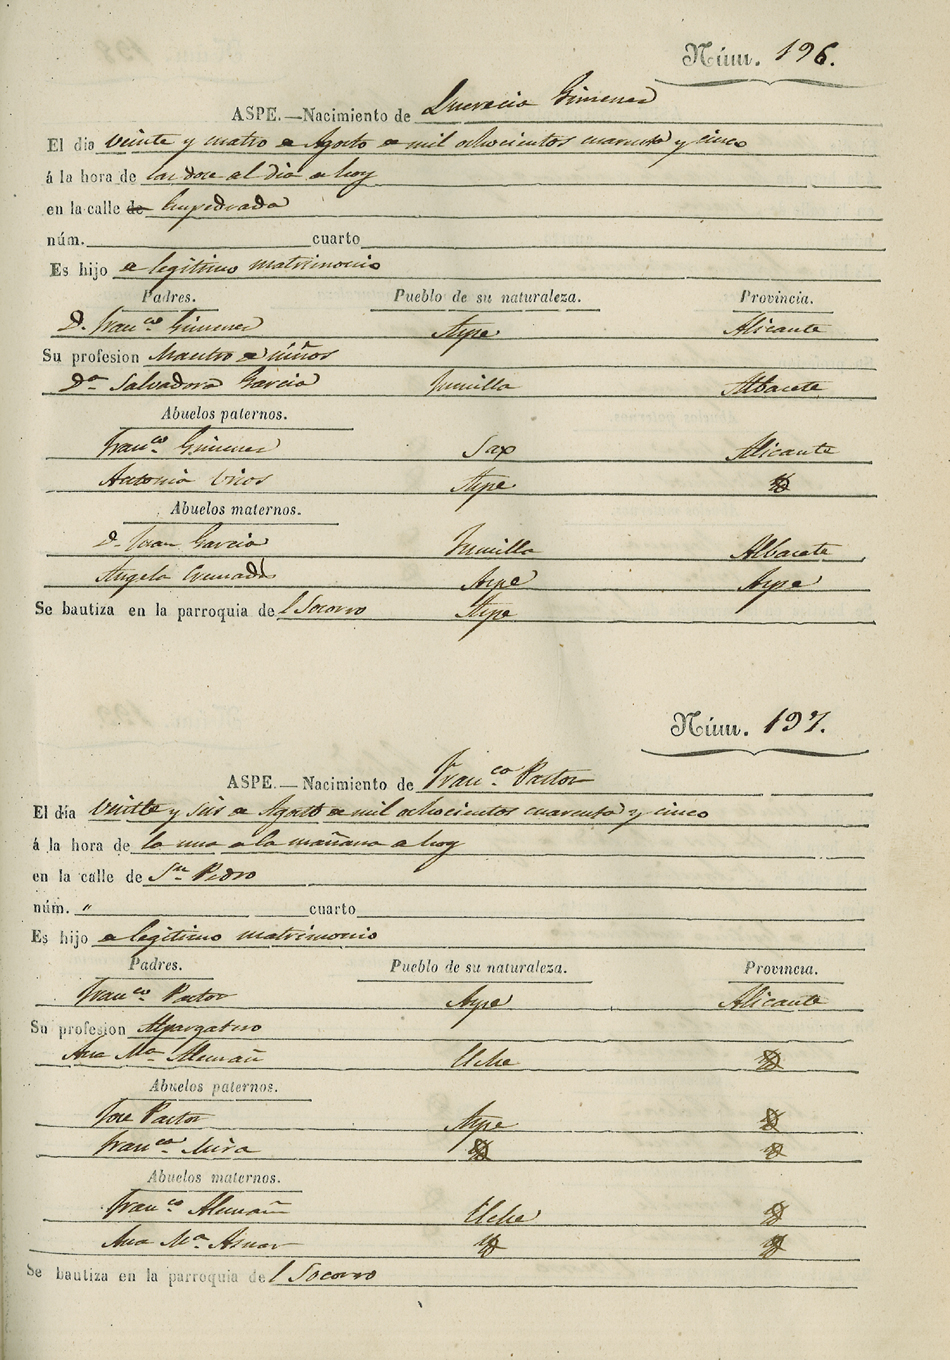 Núm. 196.
ASPE.—Nacimiento de Lucrecia Gimenez
El dia veinte y cuatro de Agosto de mil ochocientos cuarenta y cinco
á la hora de las doce del dia de hoy
en la calle de Empedrada
núm. cuarto
Es hijo de legitimo matrimonio
Padres. Pueblo de su naturaleza. Provincia.
D. Franco. Gimenez Aspe Alicante
Su profesion Maestro de niños
Da. Salvadora Garcia Jumilla Albacete
Abuelos paternos.
Franco. Gimenez Sax Alicante
Antonia Aspe
Abuelos maternos.
D. Juan Garcia Jumilla Albacete
Angela Cremades Aspe Aspe
Se bautiza en la parroquia del Socorro Aspe
Núm. 197.
ASPE.—Nacimiento de Franco. Pastor
El día veinte y seis de Agosto de mil ochocientos cuarenta y cinco
á la hora de la una de la mañana de hoy
en la calle de Sn. Pedro
núm. " cuarto
Es hijo de legitimo matrimonio
Padres. Pueblo de su naturaleza. Provincia.
Franco. Pastor Aspe Alicante
Su profesion Alpargatero
Ana Ma. Alemañ Elche
Abuelos paternos.
Jose Pastor Aspe
Franca. Mira
Abuelos maternos.
Franco. Alemañ Elche
Ana Ma. Asnar
Se bautiza en la parroquia del Socorro